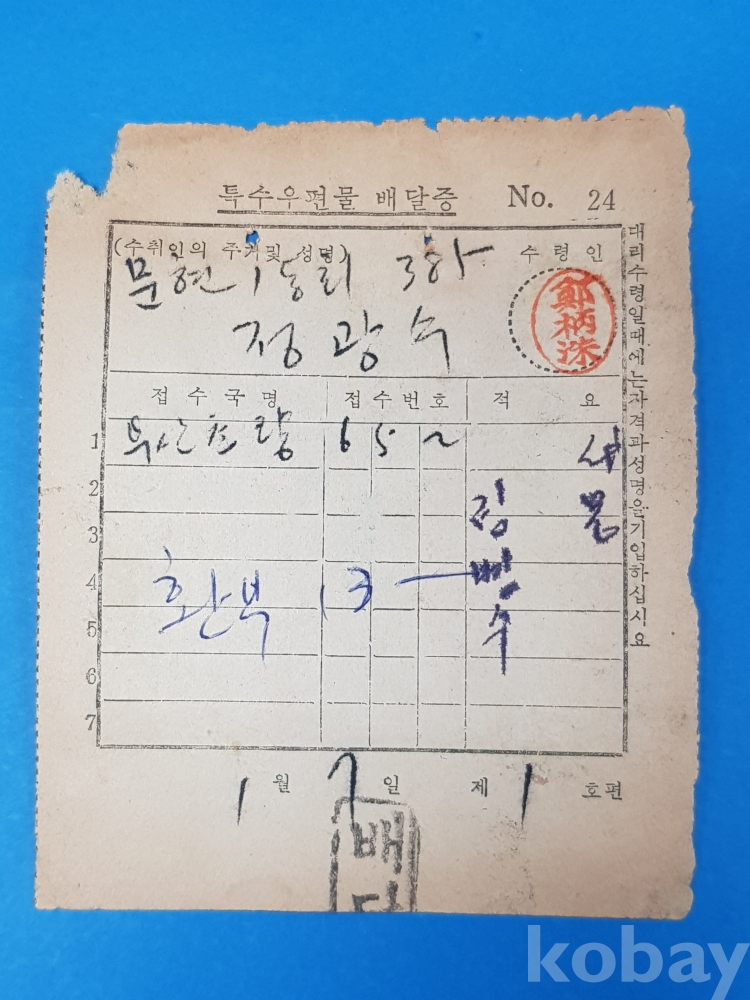 특수우편물 배달증 No. 24
(수취인의 주거및 성명) 수령인
문현1동리 3하
정광수
鄭柄洙
접수국명 접수번호 적 요
1 부산초량 652
2
3
4 환부 13
5
6
7
1월 7일 제1호편
배달
대리수령일때에는자격과성명을기입하십시요
kobay